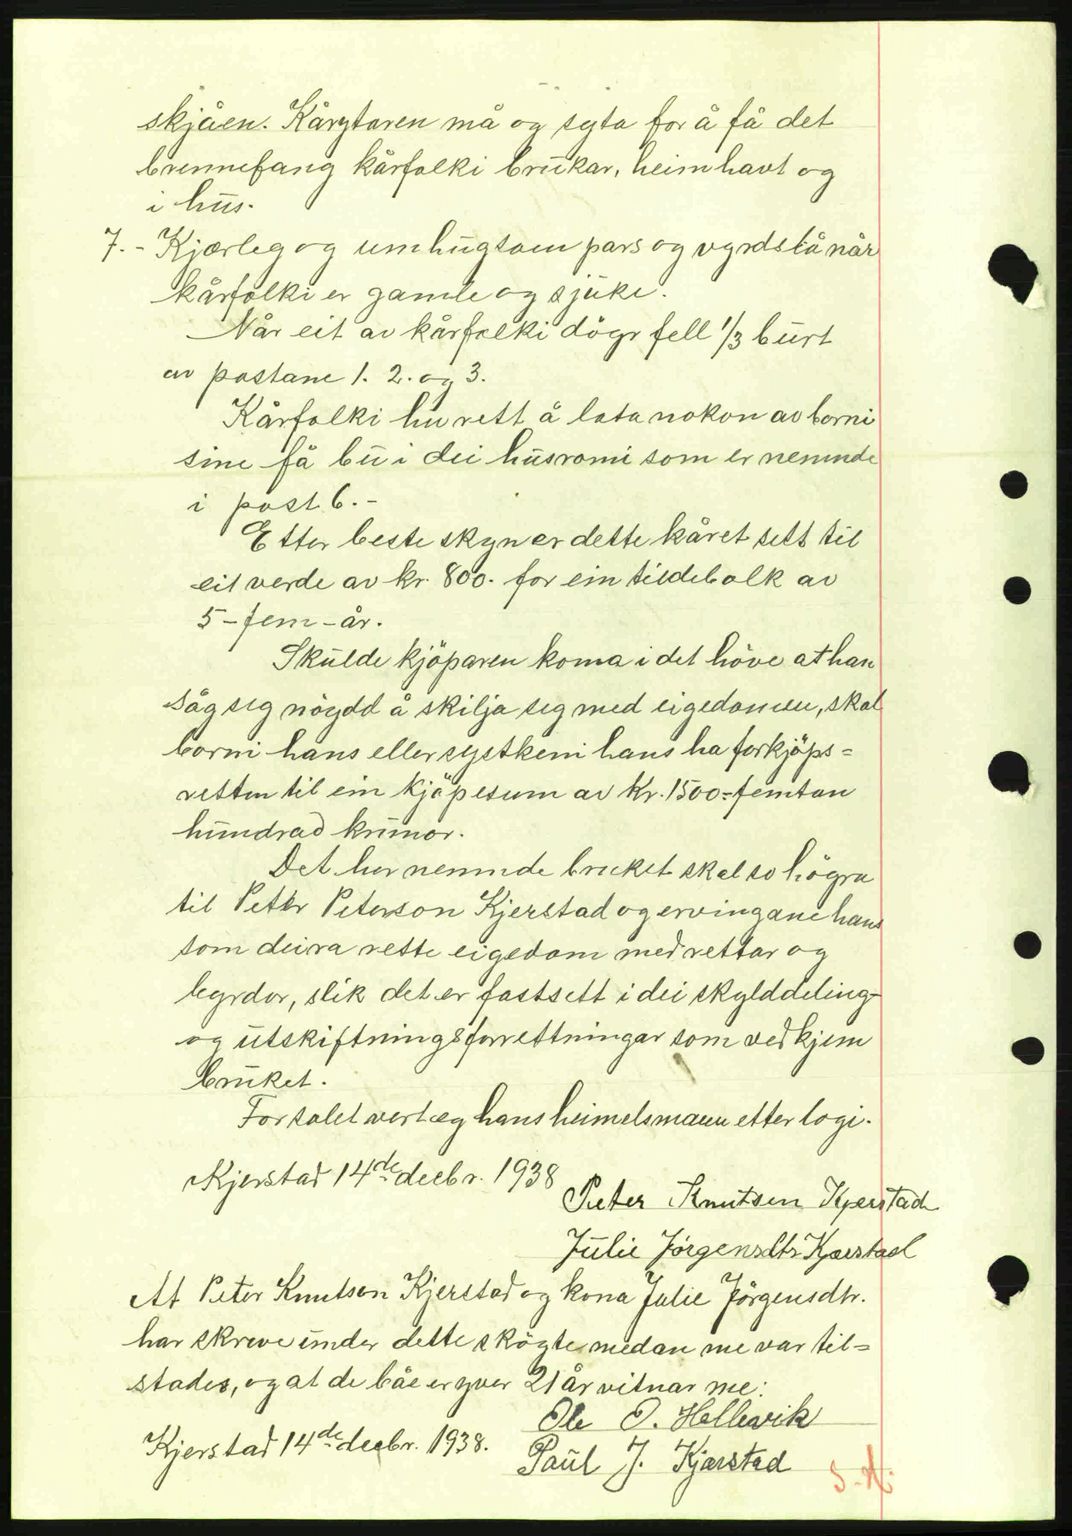 skjåen. Kårytaren må og syta for å få det
brennefang kårfolki brukar, heimhavt og
i hus.
7.- Kjærleg og umhugsam pass og vyrdsla når
kårfolki er gamle og sjuke.
Når eit av kårfolki døyr fell 1/3 burt
av postane 1. 2. og 3.
Kårfolki hev rett å lata nokon av borni
sine få bu i dei husromi som er nemnde
i post 6.-
Etter beste skyn er dette kåret sett til
eit verde av kr. 800.- for ein tidebolk av
5-fem-år.
Skulde kjöparen koma i det höve at han
såg seg nöydd å skilja seg med eigedomen, skal
borni hans eller systkeni hans ha forkjöps=
retten til ein kjöpesum av Kr. 1500=femtan
hundrad krunor.
Det her nemnde bruket skal so höyra
til Peter Peterson Kjerstad og ervingane hans
som deira rette eigedom med rettar og
byrdor, slik det er fastsett i dei skylddeling-
og utskiftningsforrettningar som vedkjem
bruket.
For salet vert eg hans heimelsmann etter logi.
Kjerstad 14de decbr. 1938
Peter Knutsen Kjerstad
Julie Jørgensdtr Kjærstad
At Peter Knutson Kjerstad og kona Julie Jörgensdtr.
har skreve under dette sköyte medan me var til=
stades, og at de båe er yver 21 år vitnar me:
Ole O. Hellevik
Kjerstad 14de decbr. 1938.
Paul J. Kjærstad